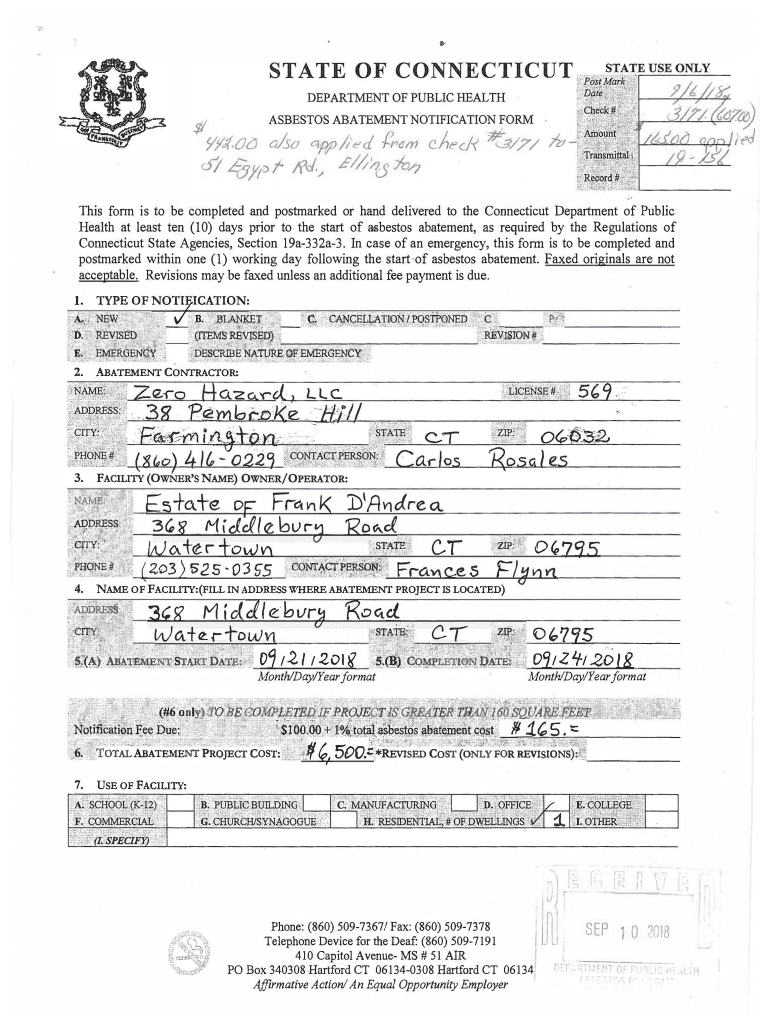 STATE OF CONNECTICUT
DEPARTMENT OF PUBLIC HEALTH
ASBESTOS ABATEMENT NOTIFICATION FORM
STATE USE ONLY
Post Mark Date 9/6/18
Check # 3171 (60700)
Amount $16500 applied
Transmittal 19-156
Record #
$442.00 also applied from check #3171 to-
51 Egypt Rd., Ellington
This form is to be completed and postmarked or hand delivered to the Connecticut Department of Public
Health at least ten (10) days prior to the start of asbestos abatement, as required by the Regulations of
Connecticut State Agencies, Section 19a-332a-3. In case of an emergency, this form is to be completed and
postmarked within one (1) working day following the start of asbestos abatement. Faxed originals are not
acceptable. Revisions may be faxed unless an additional fee payment is due.
1. TYPE OF NOTIFICATION:
A. NEW ✓ B. BLANKET C. CANCELLATION / POSTPONED C P
D. REVISED (ITEMS REVISED) REVISION #
E. EMERGENCY DESCRIBE NATURE OF EMERGENCY
2. ABATEMENT CONTRACTOR:
NAME: Zero Hazard, LLC LICENSE # 569
ADDRESS: 38 Pembroke Hill
CITY: Farmington STATE CT ZIP: 06032
PHONE # (860) 416-0229 CONTACT PERSON: Carlos Rosales
3. FACILITY (OWNER'S NAME) OWNER/OPERATOR:
NAME: Estate of Frank D'Andrea
ADDRESS 368 Middlebury Road
CITY: Watertown STATE CT ZIP: 06795
PHONE # (203) 525-0355 CONTACT PERSON: Frances Flynn
4. NAME OF FACILITY:(FILL IN ADDRESS WHERE ABATEMENT PROJECT IS LOCATED)
ADDRESS 368 Middlebury Road
CITY: Watertown STATE: CT ZIP: 06795
5.(A) ABATEMENT START DATE: 09/21/2018 5.(B) COMPLETION DATE: 09/24/2018
Month/Day/Year format Month/Day/Year format
(#6 only) TO BE COMPLETED IF PROJECT IS GREATER THAN 160 SQUARE FEET
Notification Fee Due: $100.00 + 1% total asbestos abatement cost $165.=
6. TOTAL ABATEMENT PROJECT COST: $6,500.= *REVISED COST (ONLY FOR REVISIONS):
7. USE OF FACILITY:
A. SCHOOL (K-12) B. PUBLIC BUILDING C. MANUFACTURING D. OFFICE E. COLLEGE
F. COMMERCIAL G. CHURCH/SYNAGOGUE H. RESIDENTIAL, # OF DWELLINGS ✓ 1 I. OTHER
(I. SPECIFY)
RECEIVED
SEP 10 2018
DEPARTMENT OF PUBLIC HEALTH
Phone: (860) 509-7367/ Fax: (860) 509-7378
Telephone Device for the Deaf: (860) 509-7191
410 Capitol Avenue- MS # 51 AIR
PO Box 340308 Hartford CT 06134-0308 Hartford CT 06134
Affirmative Action/ An Equal Opportunity Employer